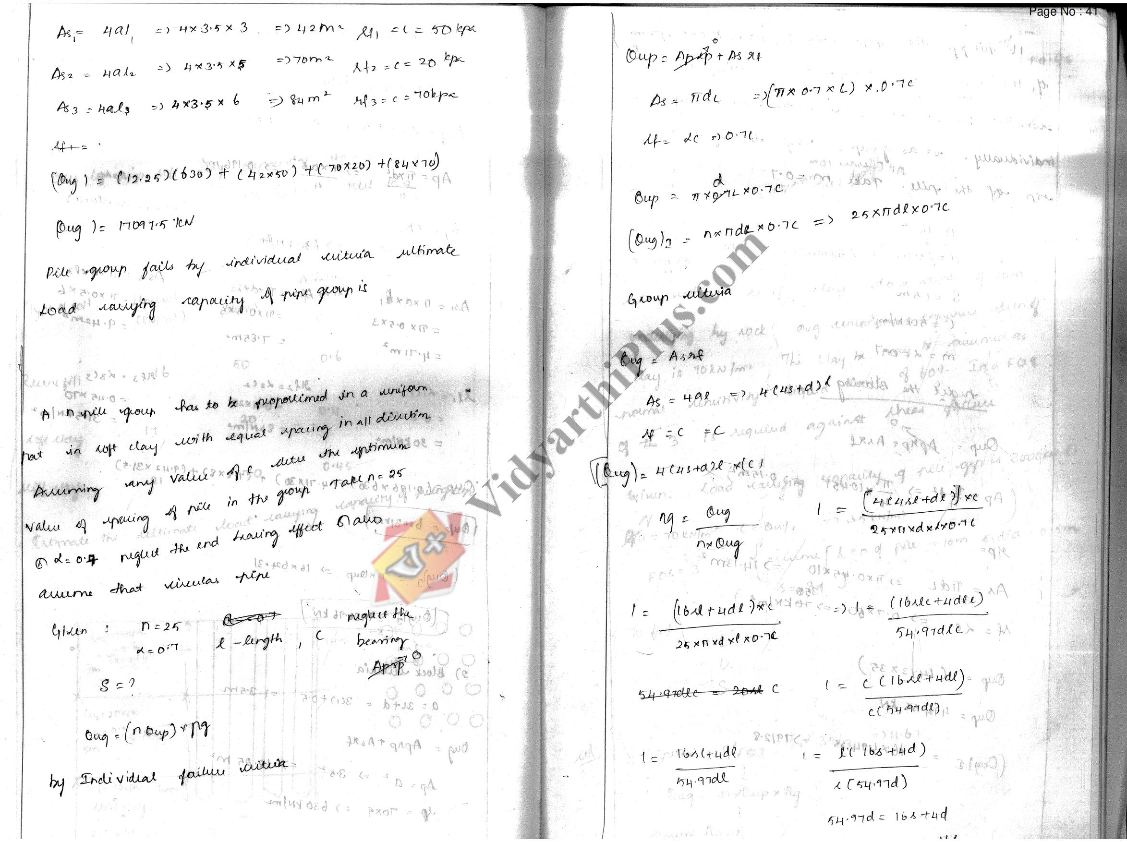 Page No : 41
As₁ = 4al₁ => 4×3.5×3 => 42m² rf₁ = c = 50 kpa
As₂ = 4al₂ => 4×3.5×5 => 70m² rf₂ = c = 20 kpa
As₃ = 4al₃ => 4×3.5×6 => 84m² rf₃ = c = 70kpa
rf =
(Qug) = (12.25)(630) + (42×50) + (70×20) + (84×70)
(Qug) = 17097.5 KN
Pile group fails by individual criteria ultimate
Load carrying capacity of pipe group is
" A n pile group has to be propotioned in a uniform
pat in soft clay with equal spacing in all direction
Assuming any value of c deter the optimum
value of spacing of pile in the group Take n = 25
α = 0.7 neglect the end bearing effect
assume that circular pipe
Given : n = 25 neglect the
α = 0.7 l - length , C bearing
Aprp 0
S = ?
Qug = (n Qup) × ηg
by Individual failure criteria
Qup = Aprp 0 + As rf
As = πdL => (π × 0.7 × L) × 0.7C
rf = αc => 0.7C
Qup = π × d L × 0.7C
(Qug)₂ = n × πdl × 0.7C => 25 × πdl × 0.7C
Group criteria
Qug = As rf
As = 4al => 4(4s+d)l
rf = c = C
(Qug) = 4(4s+d)l × (C)
ηg = Qug / n×Qug 1 = [4(4sl+dl)]×c / 25×π×d×l×0.7C
1 = (16sl+4dl)×c / 25×π×d×l×0.7C => 1 = (16slc+4dlc) / 54.97dlc
54.97dlc = 20sl C 1 = c(16sl+4dl) / c(54.97dl)
1 = 16sl+4dl / 54.97dl 1 = l(16s+4d) / l(54.97d)
54.97d = 16s+4d
VidyarthiPlus.com
V+